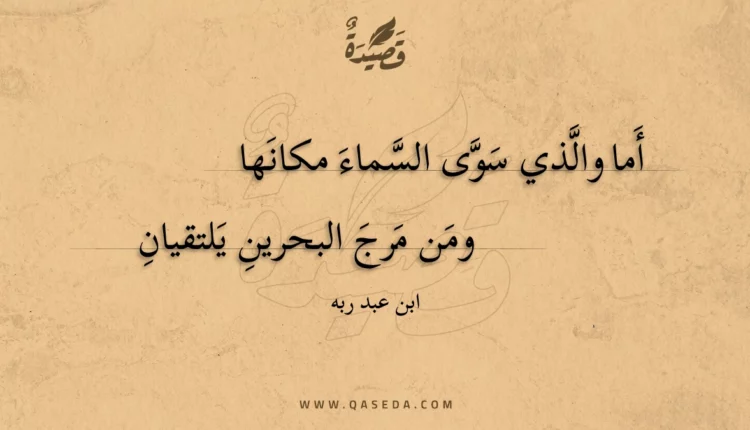 قَصِيْدَةٌ
أَما والَّذي سَوَّى السَّماءَ مكانَها
ومَن مَرجَ البحرينِ يَلتقيانِ
ابن عبد ربه
WWW.QASEDA.COM